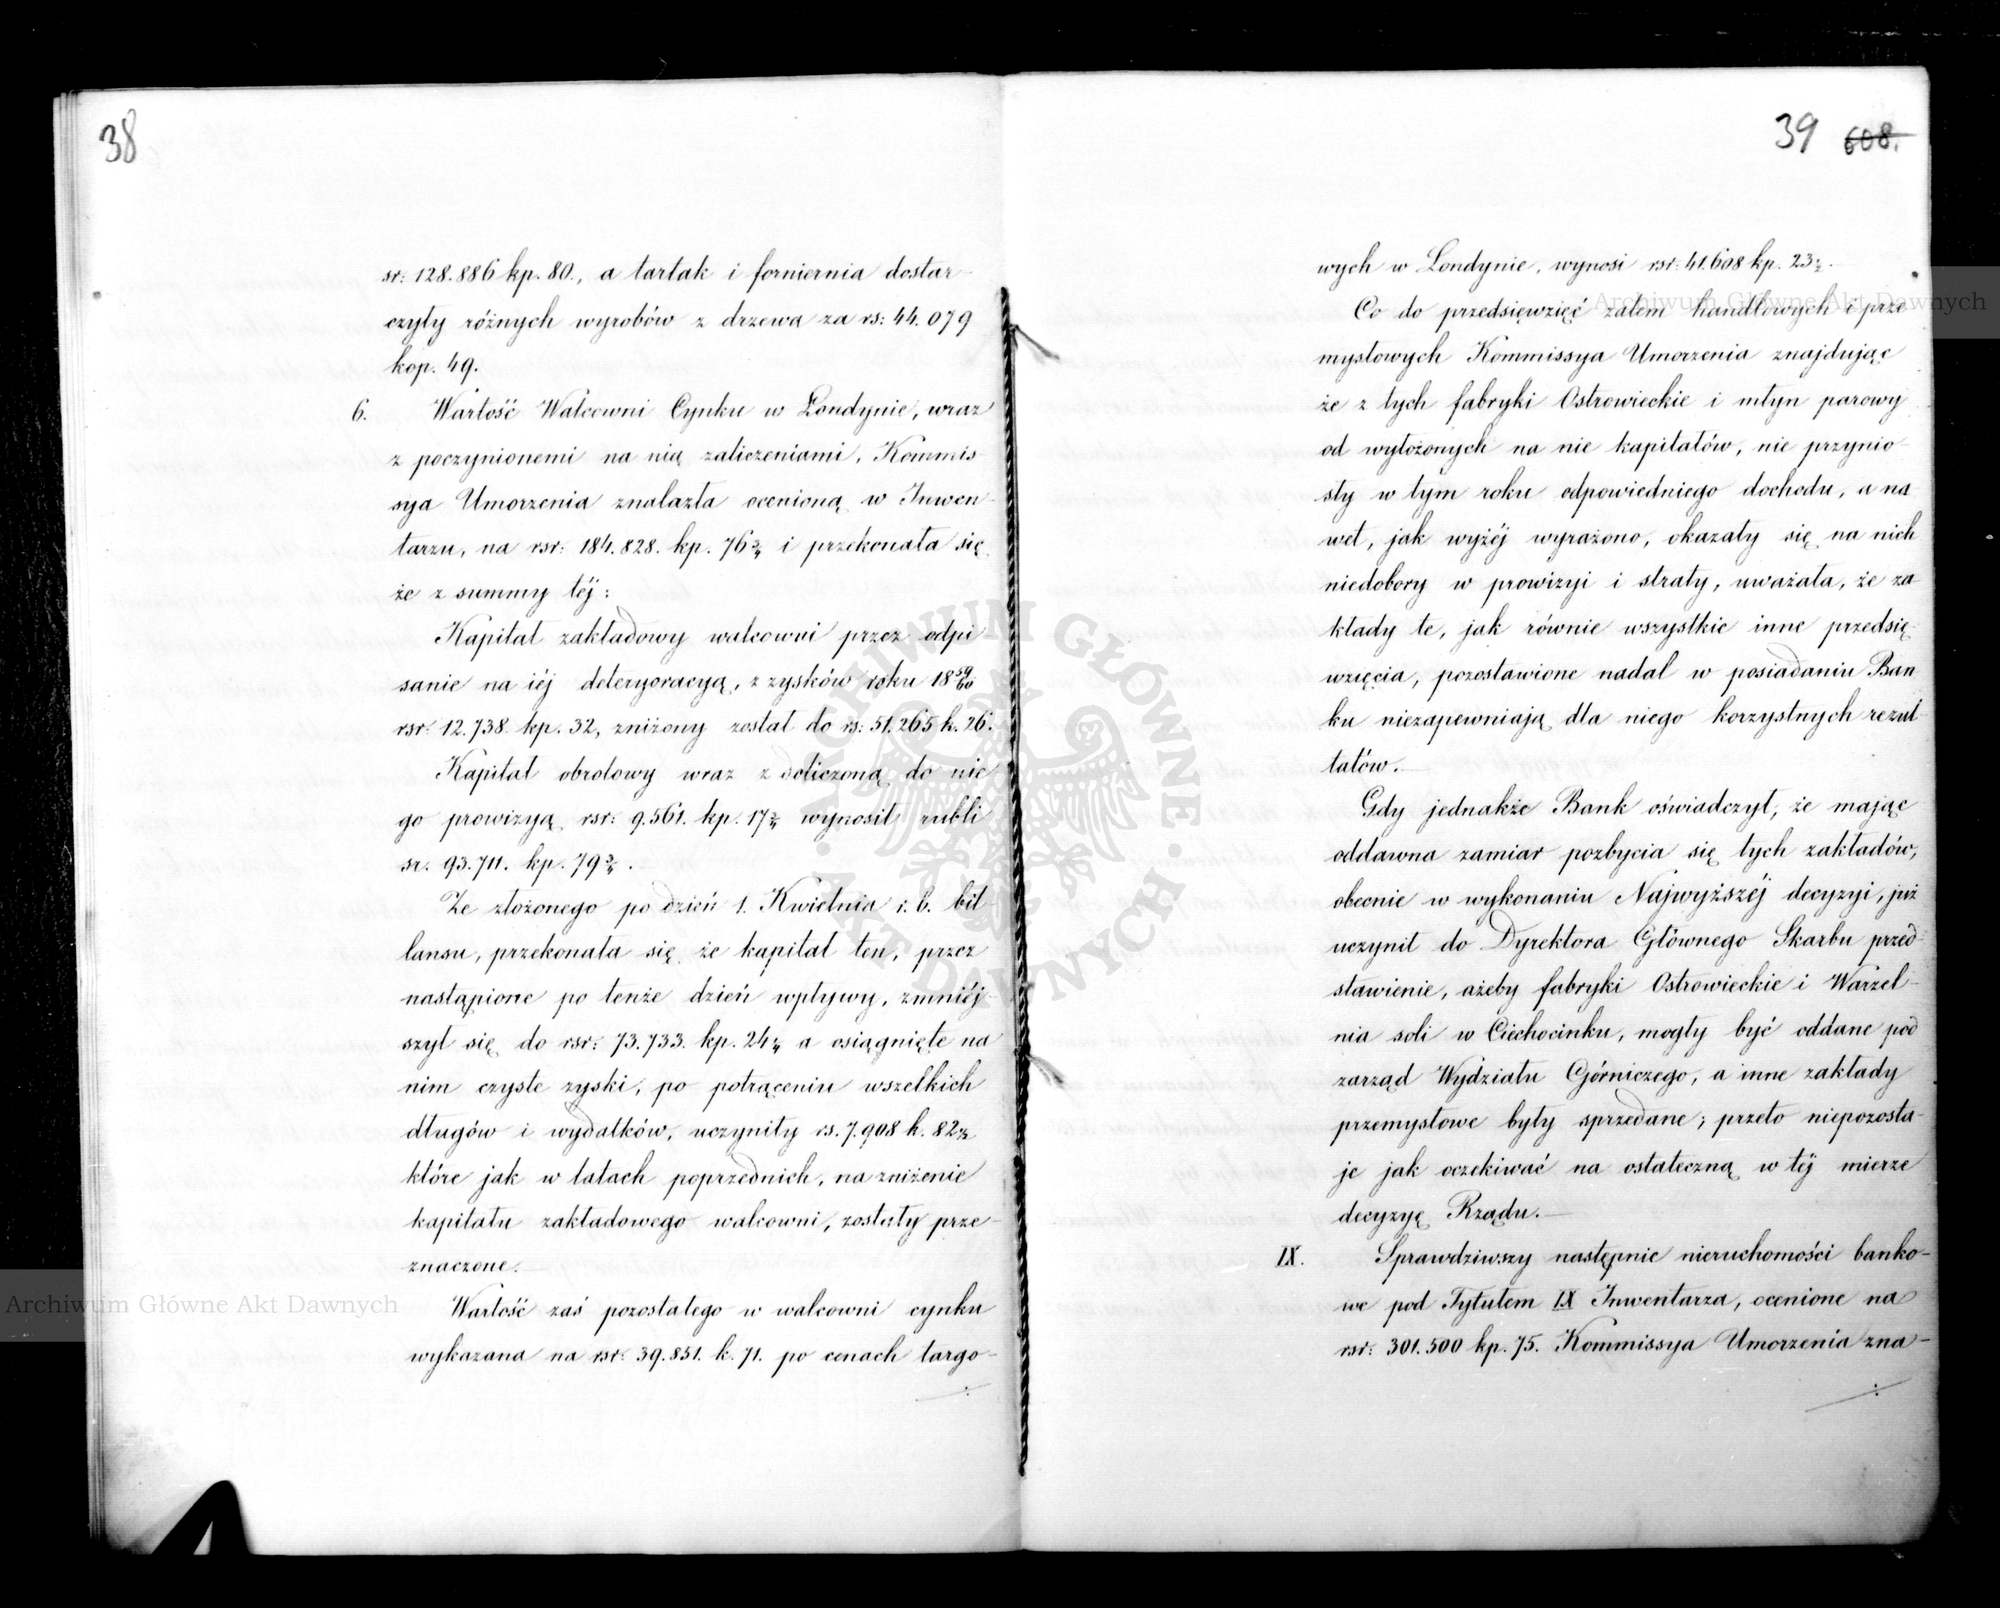 38
sr: 128.886 kp. 80., a tartak i forniernia dostar-
czyły różnych wyrobów z drzewa za rs: 44.079
kop. 49.
6. Wartość Walcowni Cynku w Londynie, wraz
z poczynionemi na nią zaliczeniami, Kommis-
sya Umorzenia znalazła ocenioną w Inwen-
tarzu, na rsr: 184.828. kp. 76¾ i przekonała się
że z summy téj:
Kapitał zakładowy walcowni przez odpi
sanie na iéj deteryoracyą, z zysków roku 18 59/60
rsr: 12.738. kp. 32, zniżony został do rs: 51.265 k. 26.
Kapitał obrotowy wraz z doliczoną do nie
go prowizyą rsr: 9.561. kp. 17¾ wynosił rubli
sr. 93.711. kp. 79¾.
Ze złożonego po dzień 1. Kwietnia r. b. bil-
lansu, przekonała się że kapitał ten, przez
nastąpione po tenże dzień wpływy, zmniéj-
szył się do rsr: 73.733. kp. 24¼ a osiągnięte na
nim czyste zyski, po potrąceniu wszelkich
długów i wydatków, uczyniły rs. 7.908 k. 82
które jak w latach poprzednich, na zniżenie
kapitału zakładowego walcowni, zostały prze-
znaczone.—
Wartość zaś pozostałego w walcowni cynku
wykazana na rsr: 39.851. k. 71. po cenach targo-
39 608.
wych w Londynie, wynosi rsr: 41.608 kp. 23½.
Co do przedsięwzięć zatem handlowych i prze
mysłowych Kommissya Umorzenia znajdując
że z tych fabryki Ostrowieckie i młyn parowy
od wyłożonych na nie kapitałów, nie przynio-
sły w tym roku odpowiedniego dochodu, a na
wet, jak wyżéj wyrażono, okazały się na nich
niedobory w prowizyi i straty, uważała, że za
kłady te, jak równie wszystkie inne przedsię-
wzięcia, pozostawione nadal w posiadaniu Ban
ku niezapewniają dla niego korzystnych rezul-
tatów.—
Gdy jednakże Bank oświadczył, że mając
oddawna zamiar pozbycia się tych zakładów,
obecnie w wykonaniu Najwyższéj decyzyi, już
uczynił do Dyrektora Głównego Skarbu przed-
stawienie, ażeby fabryki Ostrowieckie i Warzel-
nia soli w Ciechocinku, mogły być oddane pod
zarząd Wydziału Górniczego, a inne zakłady
przemysłowe były sprzedane; przeto niepozosta-
je jak oczekiwać na ostateczną w téj mierze
decyzyę Rządu.—
IX. Sprawdziwszy następnie nieruchomości banko-
we pod Tytułem IX Inwentarza, ocenione na
rsr: 301.500 kp. 75. Kommissya Umorzenia zna-
ARCHIWUM GŁÓWNE AKT DAWNYCH
Archiwum Główne Akt Dawnych
Archiwum Główne Akt Dawnych